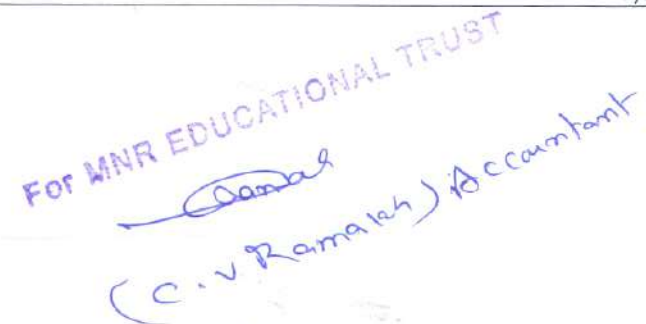 For MNR EDUCATIONAL TRUST
(C. V Ramaiah) Accountant